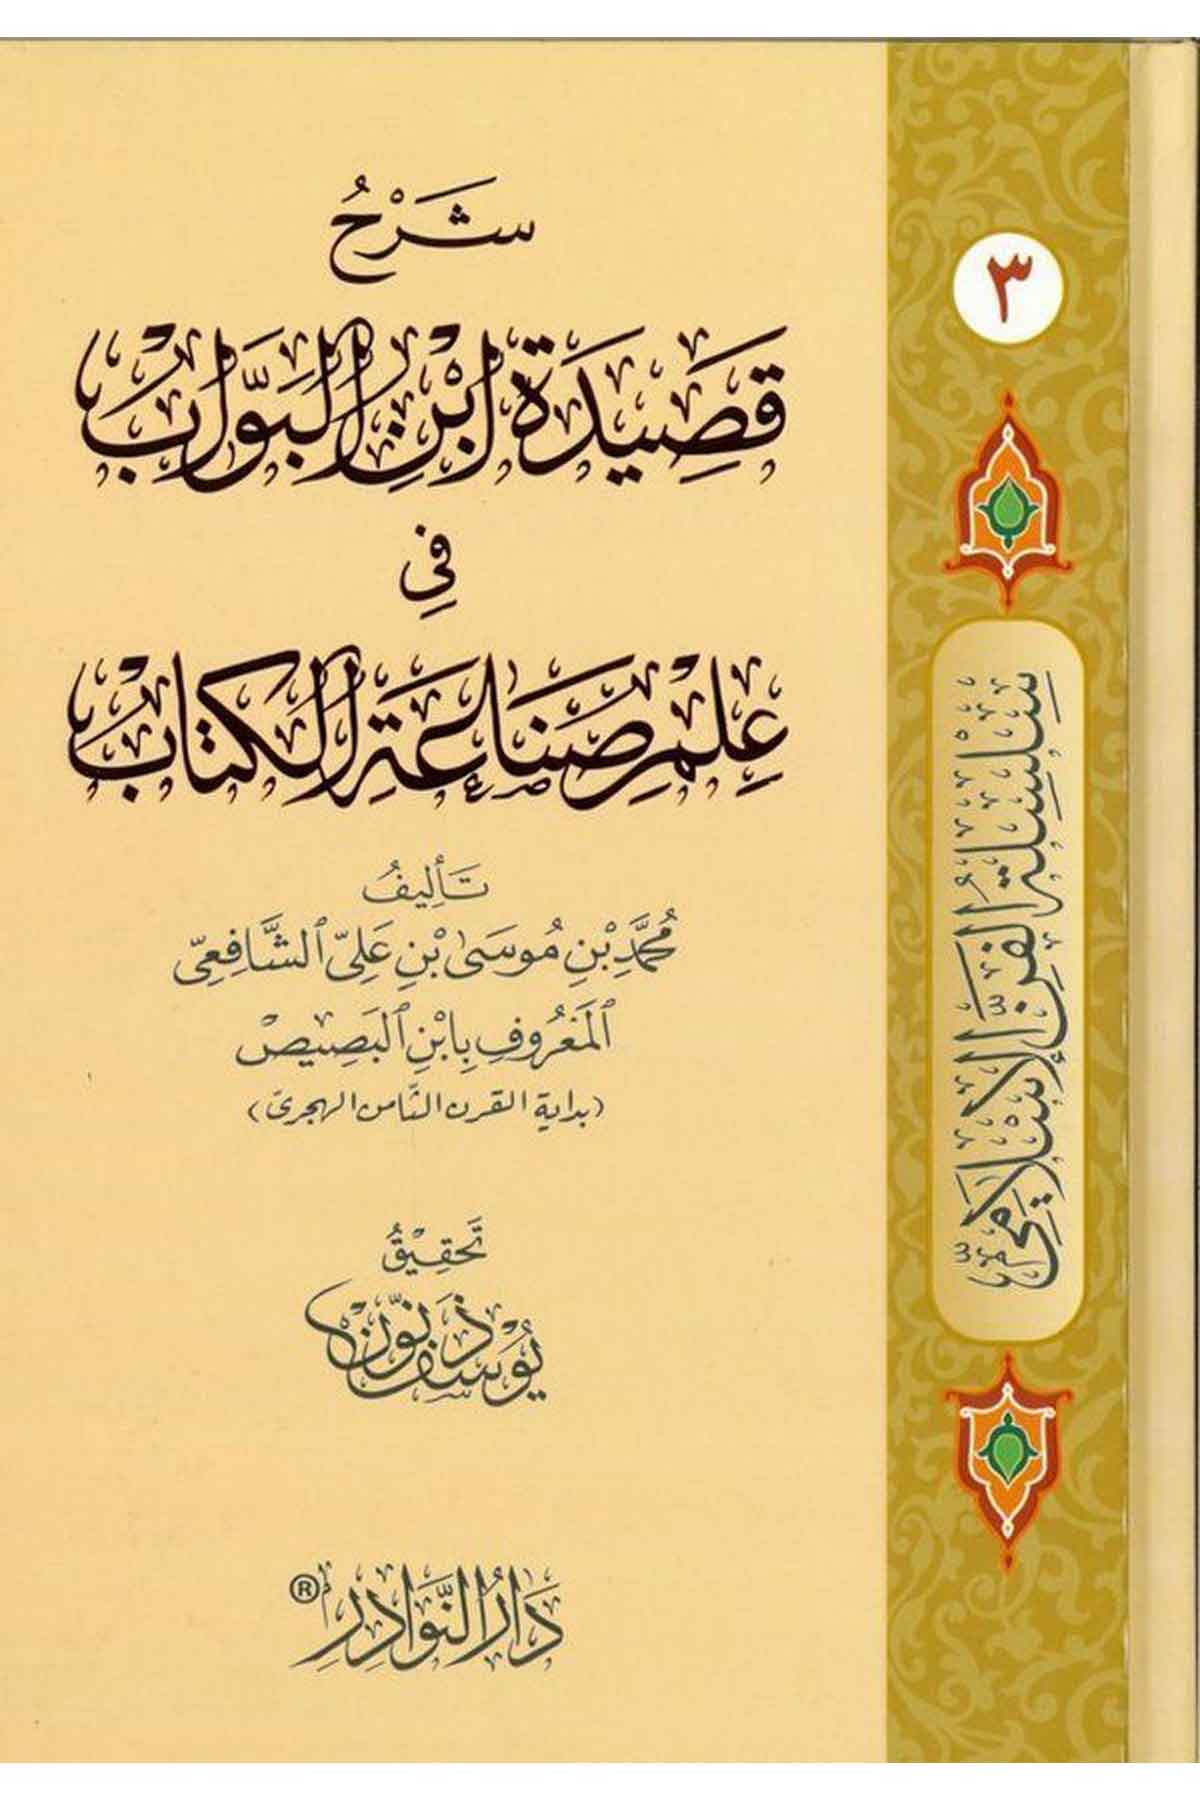 شَرْحُ
قَصِيدَةِ ابْنِ الْبَوَّابِ
فِي
عِلْمِ صِنَاعَةِ الْكِتَابِ
تَأْلِيفُ
مُحَمَّدِ بْنِ مُوسَى بْنِ عَلِيّ الشَّافِعِيّ
الْمَعْرُوفِ بِابْنِ الْبَصِيصِ
(بداية القرن الثامن الهجري)
تَحْقِيقُ
يُوسُف ذَنّون
دَارُ النَّوَادِرِ ®
٣
سِلْسِلَةُ الْفَنِّ الْإِسْلَامِيِّ